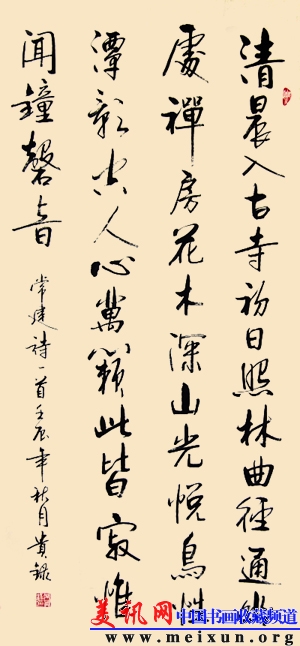 清晨入古寺初日照林曲徑通幽
處禪房花木深山光悅鳥性
潭影空人心萬籟此皆寂惟
聞鐘磬音
常建詩一首壬辰年秋月貴錄
美讯网 中国书画收藏频道
www.meixun.org